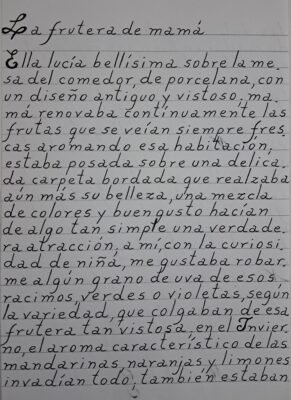 La frutera de mamá
Ella lucía bellísima sobre la me
sa del comedor, de porcelana, con
un diseño antiguo y vistoso, ma
má renovaba contínuamente las
frutas que se veían siempre fres
cas aromando esa habitación,
estaba posada sobre una delica
da carpeta bordada que realzaba
aún más su belleza, una mezcla
de colores y buen gusto hacían
de algo tan simple una verdade
ra atracción, a mí, con la curiosi
dad de niña, me gustaba robar
me algún grano de uva de esos
racimos, verdes o violetas, según
la variedad, que colgaban de esa
frutera tan vistosa, en el Invier
no, el aroma característico de las
mandarinas, naranjas y limones
invadían todo, también estaban